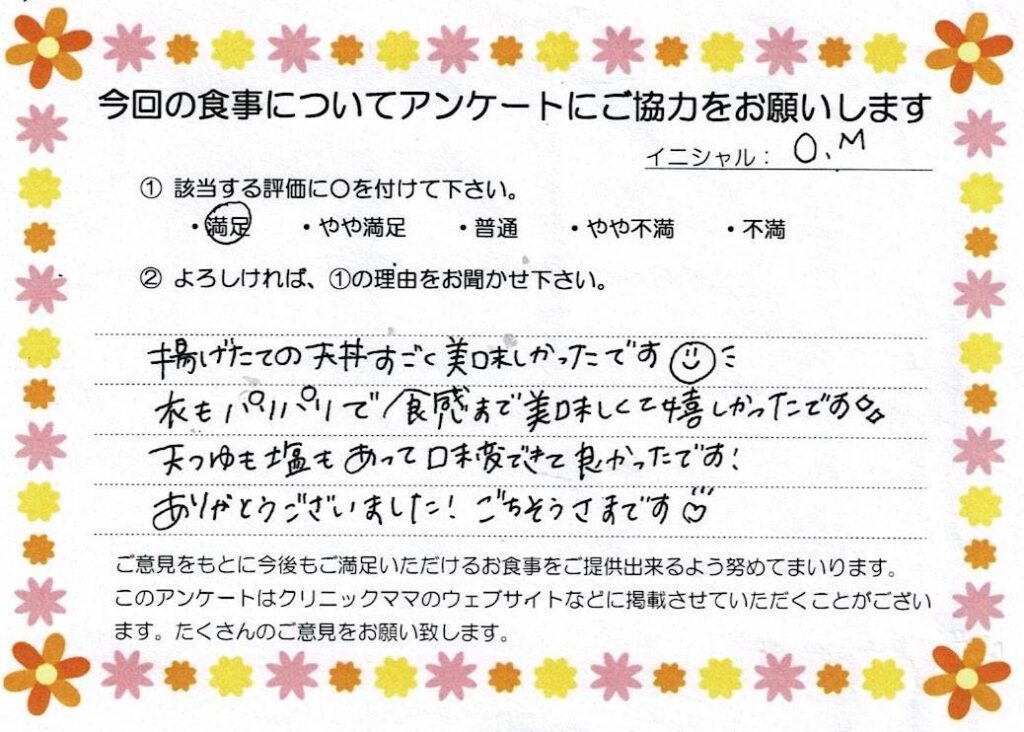 今回の食事についてアンケートにご協力をお願いします
イニシャル： O.M
① 該当する評価に〇を付けて下さい。
・満足 ・やや満足 ・普通 ・やや不満 ・不満
② よろしければ、①の理由をお聞かせ下さい。
揚げたての天丼すごく美味しかったです
衣もパリパリで食感まで美味しくて嬉しかったです
天つゆも塩もあって味変できて良かったです!
ありがとうございました! ごちそうさまです♡
ご意見をもとに今後もご満足いただけるお食事をご提供出来るよう努めてまいります。
このアンケートはクリニックママのウェブサイトなどに掲載させていただくことがござい
ます。たくさんのご意見をお願い致します。